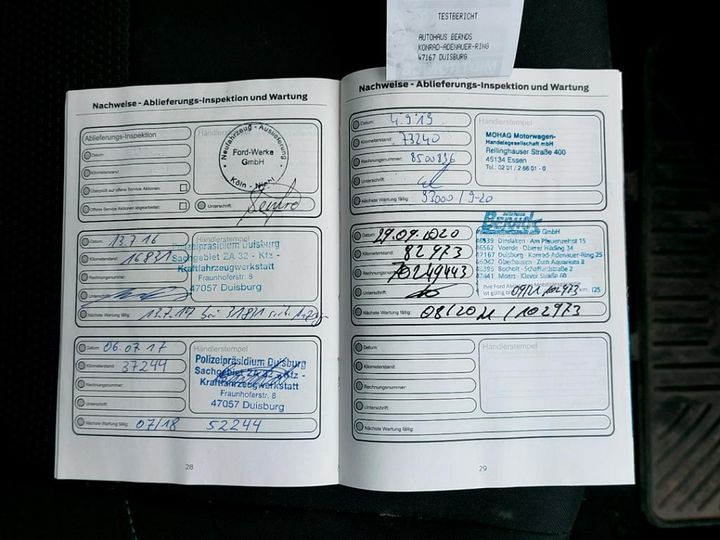 TESTBERICHT
AUTOHAUS BERNDS
KONRAD-ADENAUER-RING
47167 DUISBURG
Nachweise - Ablieferungs-Inspektion und Wartung
Ablieferungs-Inspektion
Händlerstempel
Datum:
Kilometerstand:
Überprüft auf offene Service Aktionen:
Offene Service Aktionen abgearbeitet:
Unterschrift:
Neufahrzeug - Auslieferung
Ford-Werke
GmbH
Köln - Niehl
Datum: 13.7.16
Kilometerstand: 16831
Rechnungsnummer:
Unterschrift:
Nächste Wartung fällig: 13.7.17 bei 31811
Händlerstempel
Polizeipräsidium Duisburg
Sachgebiet ZA 32 - Kfz -
Kraftfahrzeugwerkstatt
Fraunhoferstr. 8
47057 Duisburg
Datum: 06.07.17
Kilometerstand: 37244
Rechnungsnummer:
Unterschrift:
Nächste Wartung fällig: 07/18 52244
Händlerstempel
Polizeipräsidium Duisburg
Sachgebiet ZA 32 - Kfz -
Kraftfahrzeugwerkstatt
Fraunhoferstr. 8
47057 Duisburg
28
Nachweise - Ablieferungs-Inspektion und Wartung
Datum: 4.9.19
Kilometerstand: 73240
Rechnungsnummer: 8500836
Unterschrift:
Nächste Wartung fällig: 93000 / 9-20
Händlerstempel
MOHAG Motorwagen-
Handelsgesellschaft mbH
Rellinghauser Straße 400
45134 Essen
Tel.: 02 01 / 2 66 01 - 0
Datum: 29.09.2020
Kilometerstand: 82973
Rechnungsnummer: 10249443
Unterschrift:
Nächste Wartung fällig: 08/2021 / 102973
Bernds
GmbH
46539 Dinslaken · Am Pfauenzehnt 15
46562 Voerde · Oberer Hilding 34
47167 Duisburg · Konrad-Adenauer-Ring 25
46395 Bocholt · Schaffeldstraße 2
47441 Moers · Klever Straße 60
09/21 102973
Datum:
Kilometerstand:
Rechnungsnummer:
Unterschrift:
Nächste Wartung fällig:
Händlerstempel
29